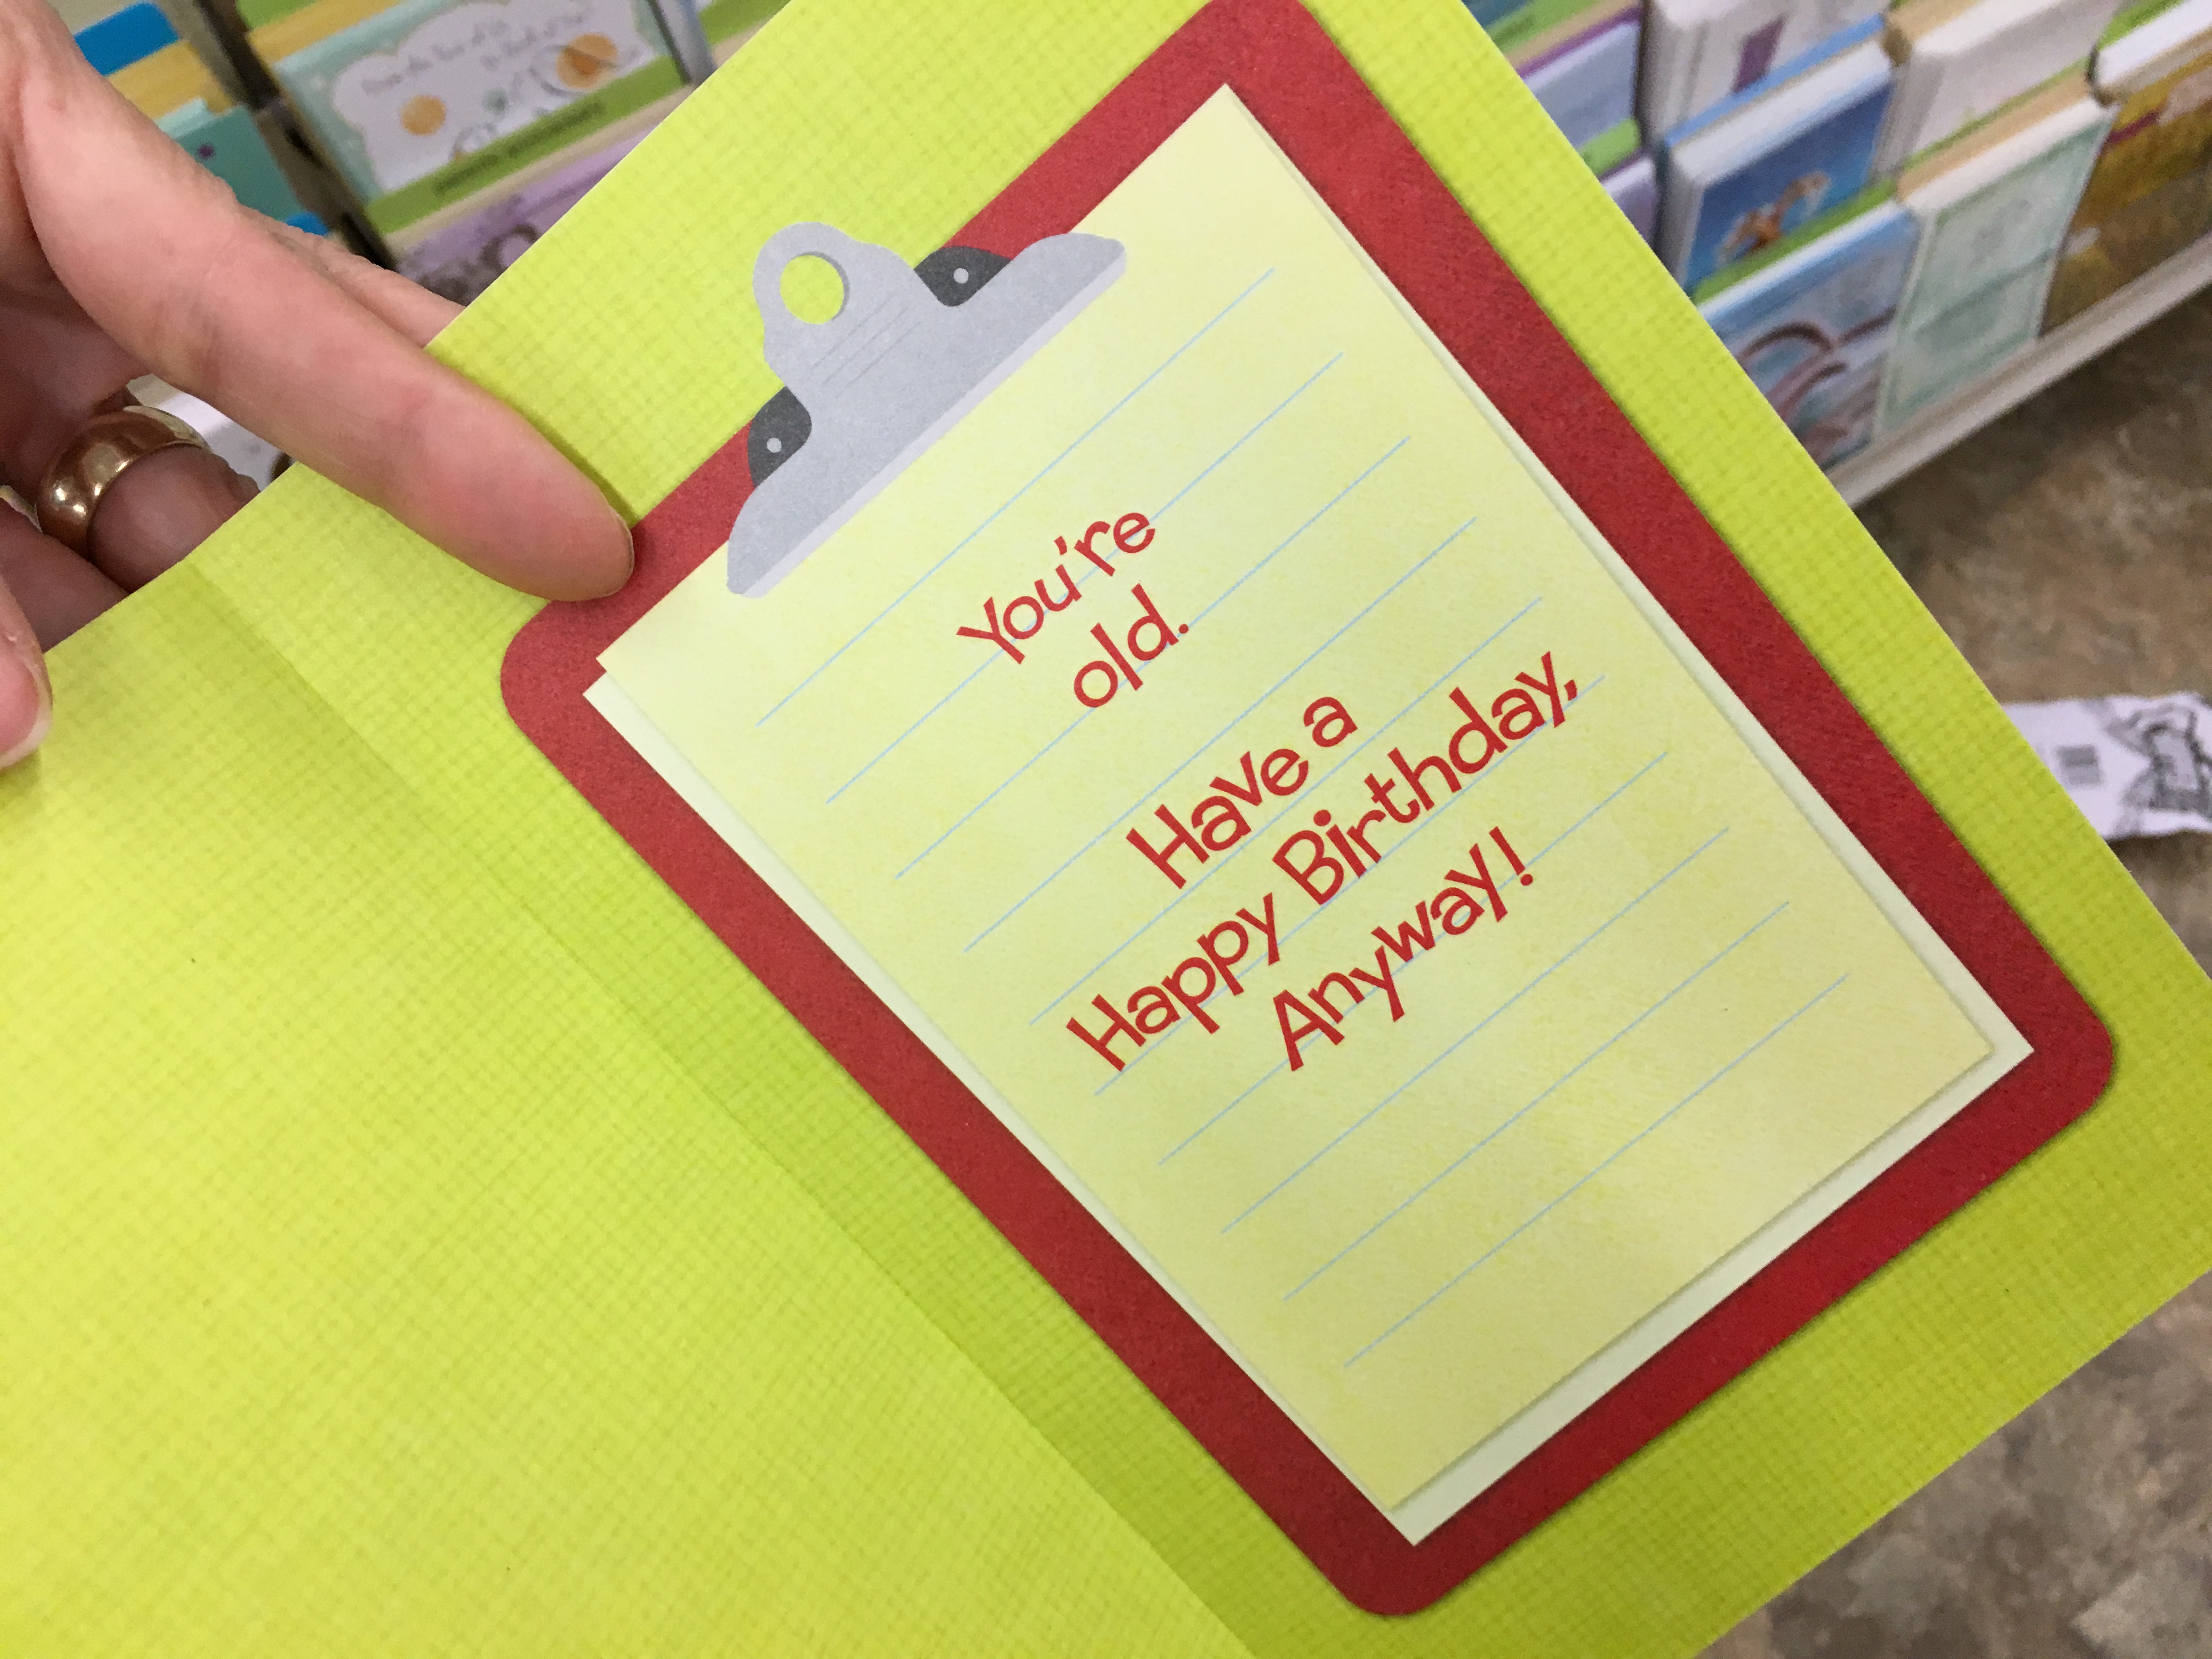 You're
old.
Have a
Happy Birthday,
Anyway!